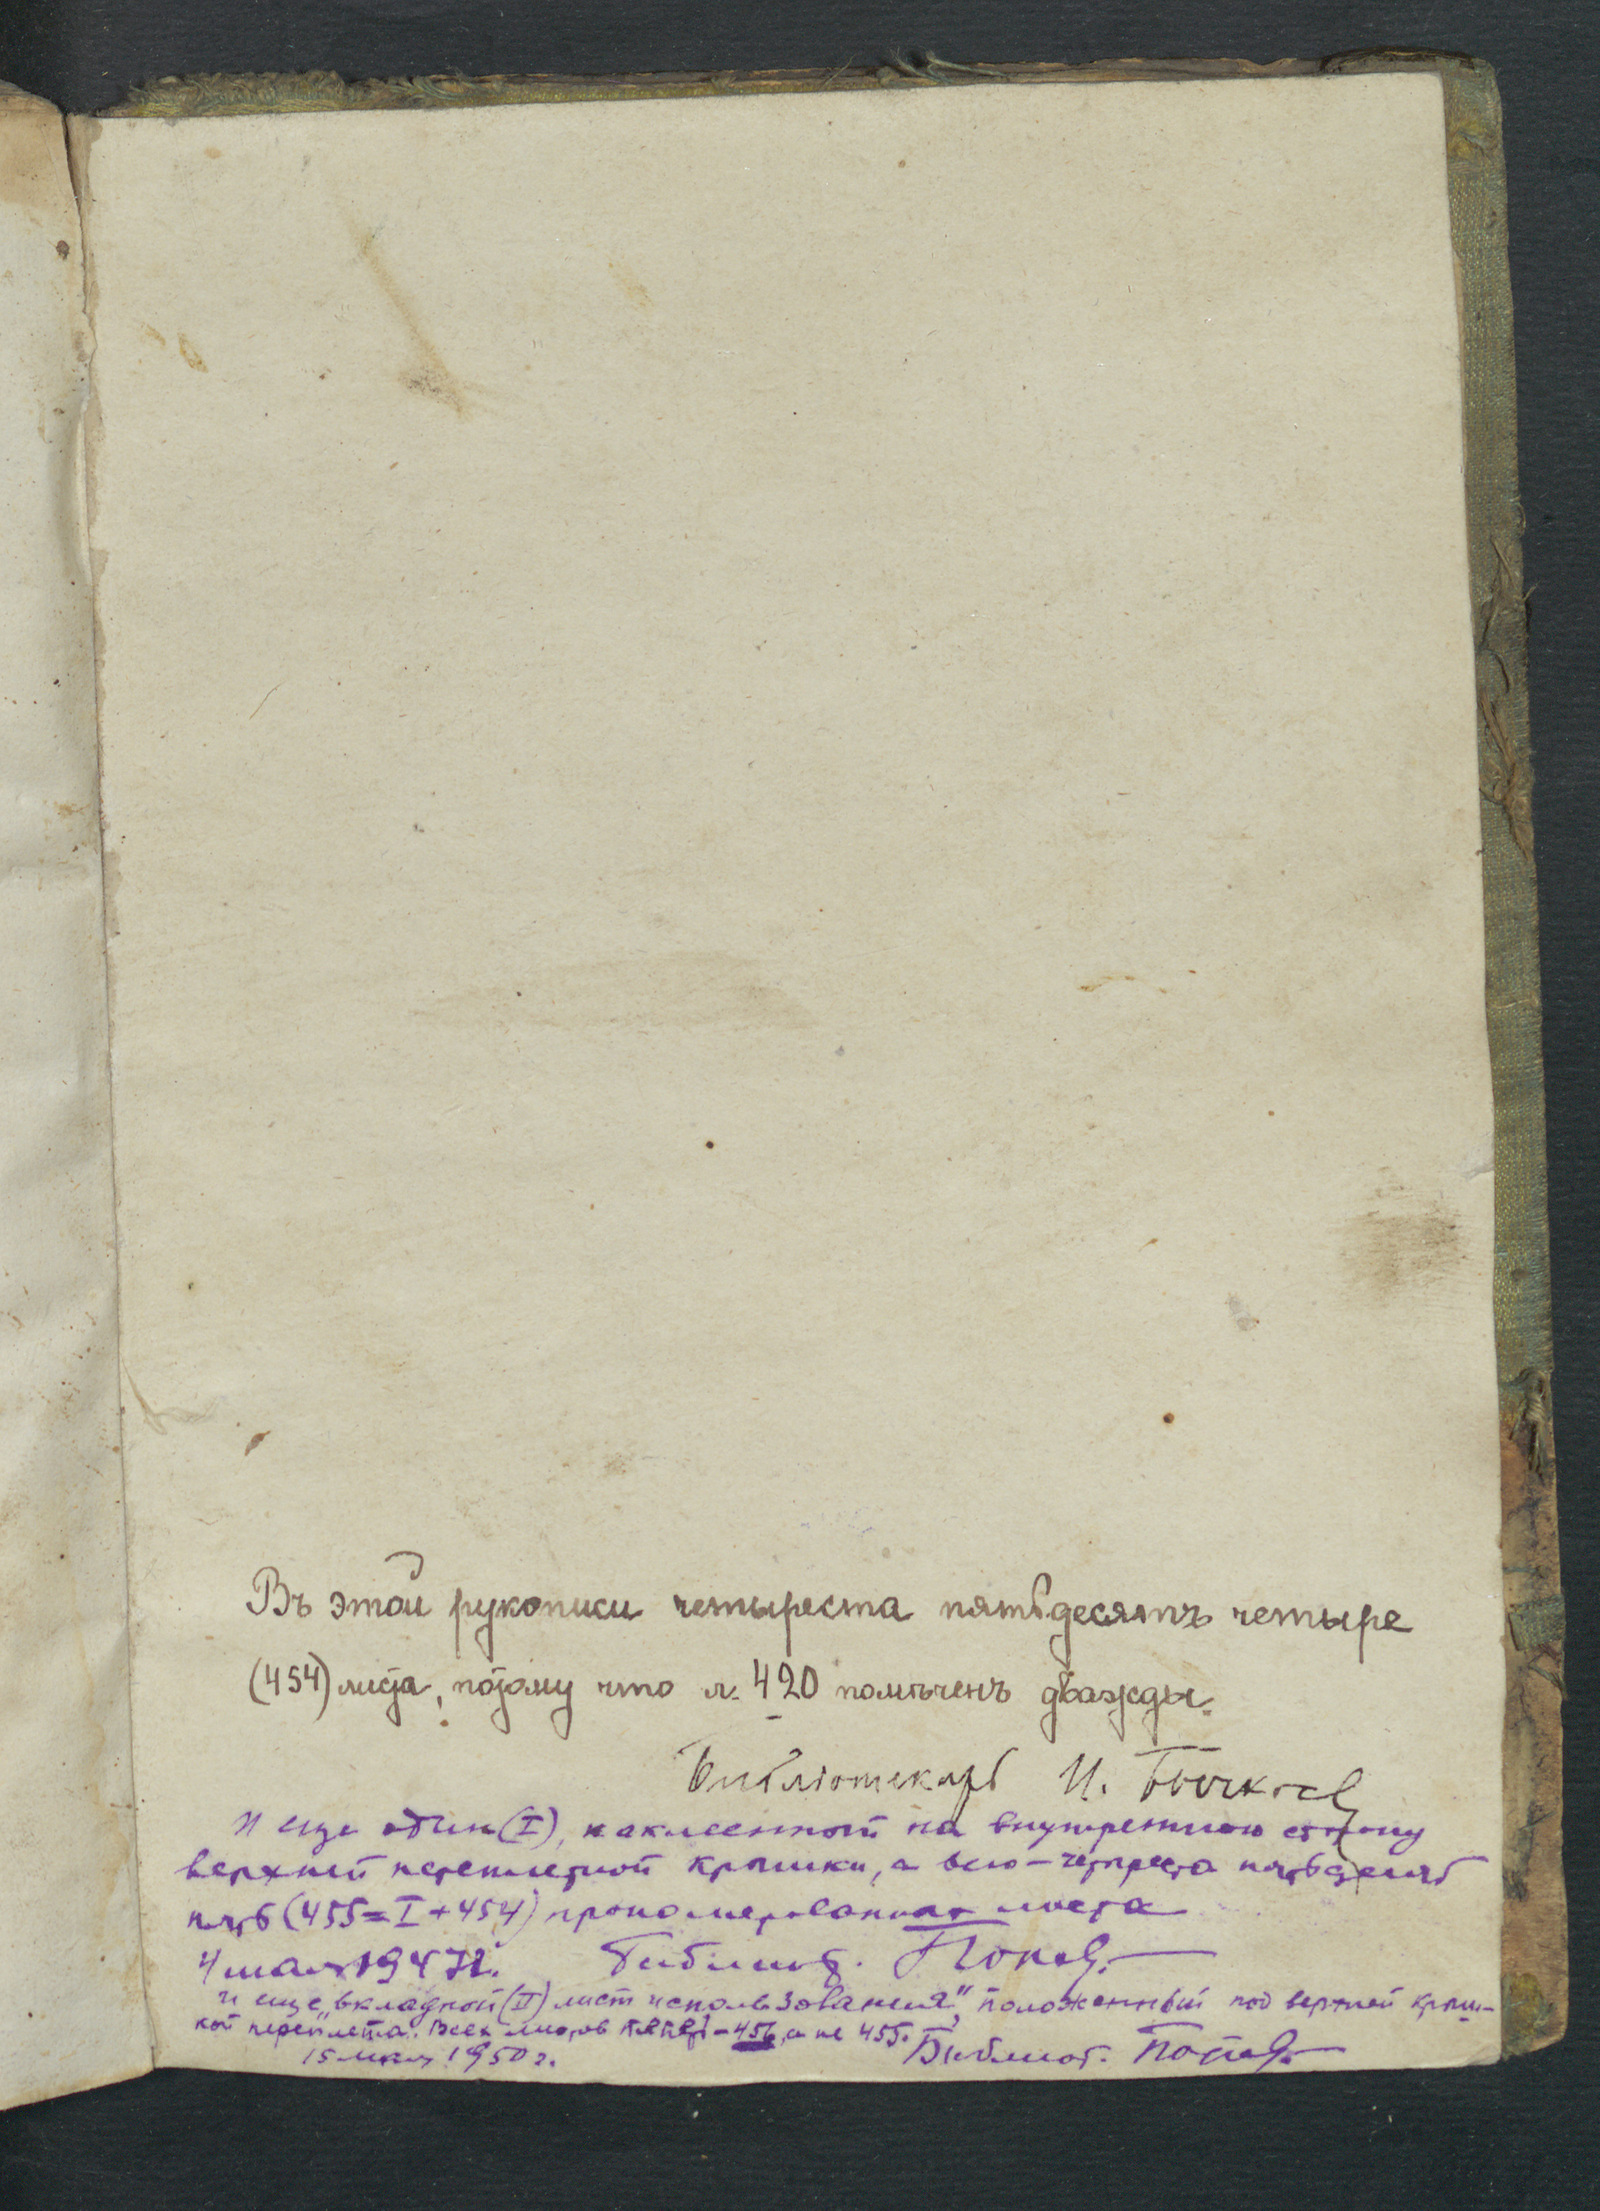 Въ этой рукописи четыреста пятьдесятъ четыре
(454) листа, потому что л. 420 помѣченъ дважды.
Библіотекарь И. Бычков
И еще один (I), наклеенный на внутреннюю сторону
верхней переплетной крышки, а всего – четыреста пятьдесят
пять (455 = I + 454) пронумерованных листа
4 мая 1947 г. Библиот. Попов.
и еще „вкладной (II) лист использования", положенный под верхней крыш-
кой переплета. Всех листов теперь – 456, а не 455.
15 мая 1950 г. Библиот. Попов.